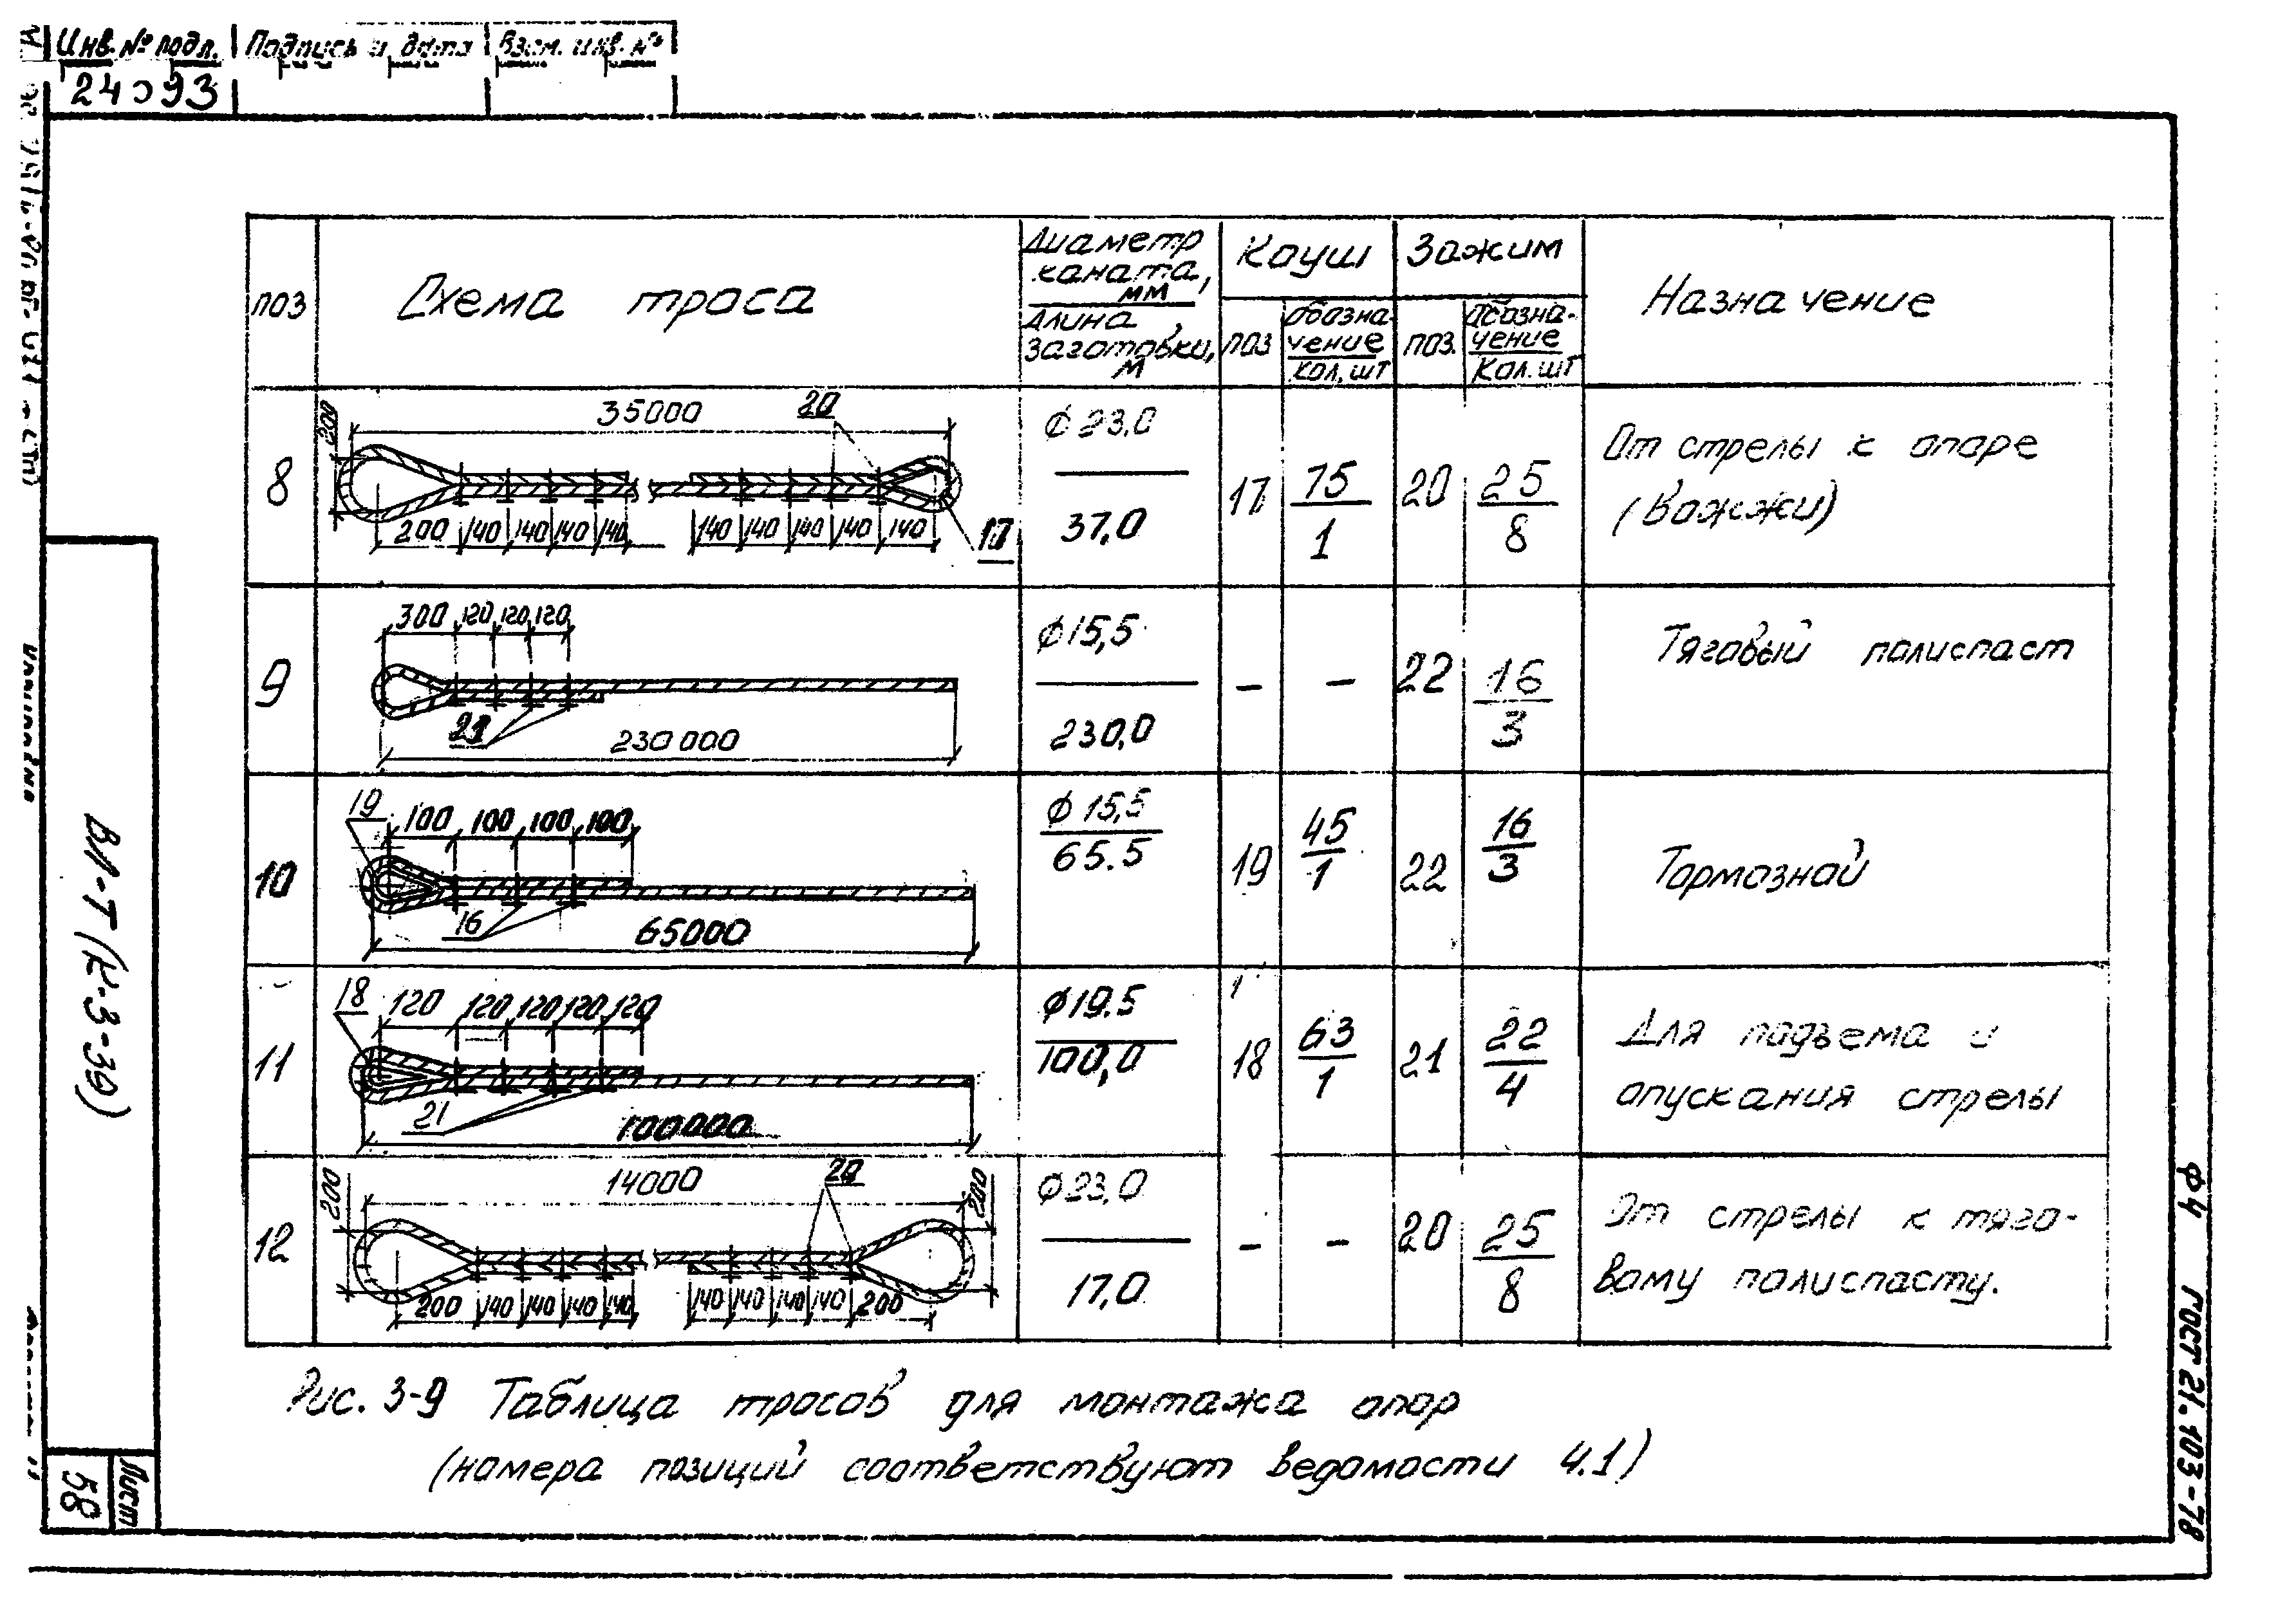 Инв. № подл. Подпись и дата Взам. инв. №
24 93
поз Схема троса Диаметр каната, мм Длина заготовки, м Кауш Зажим Назначение
поз Обозначение Кол, шт поз. Обозначение Кол. шт
8
35000 20
200
200 140 140 140 140 140 140 140 140 140 17
ф 23,0
37,0
17 75 1 20 25 8
От стрелы к опоре
(Вожжи)
9
300 120 120 120
230 000
ф15,5
230,0
- - 22 16 3
Тяговый полиспаст
10
19 100 100 100 100
16
65000
ф 15,5
65.5
19 45 1 22 16 3
Тормозной
11
18 120 120 120 120 120
21
100000
ф19.5
100,0
18 63 1 21 22 4
Для подъема и
опускания стрелы
12
14000 20
200 200
200 140 140 140 140 140 140 140 140 200
ф23,0
17,0
- - 20 25 8
От стрелы к тяго-
вому полиспасту.
Рис. 3-9 Таблица тросов для монтажа опор
(номера позиций соответствуют ведомости 4.1)
ВЛ-Т (К-3-39)
Лист
58
Ф4 ГОСТ 21.103-78